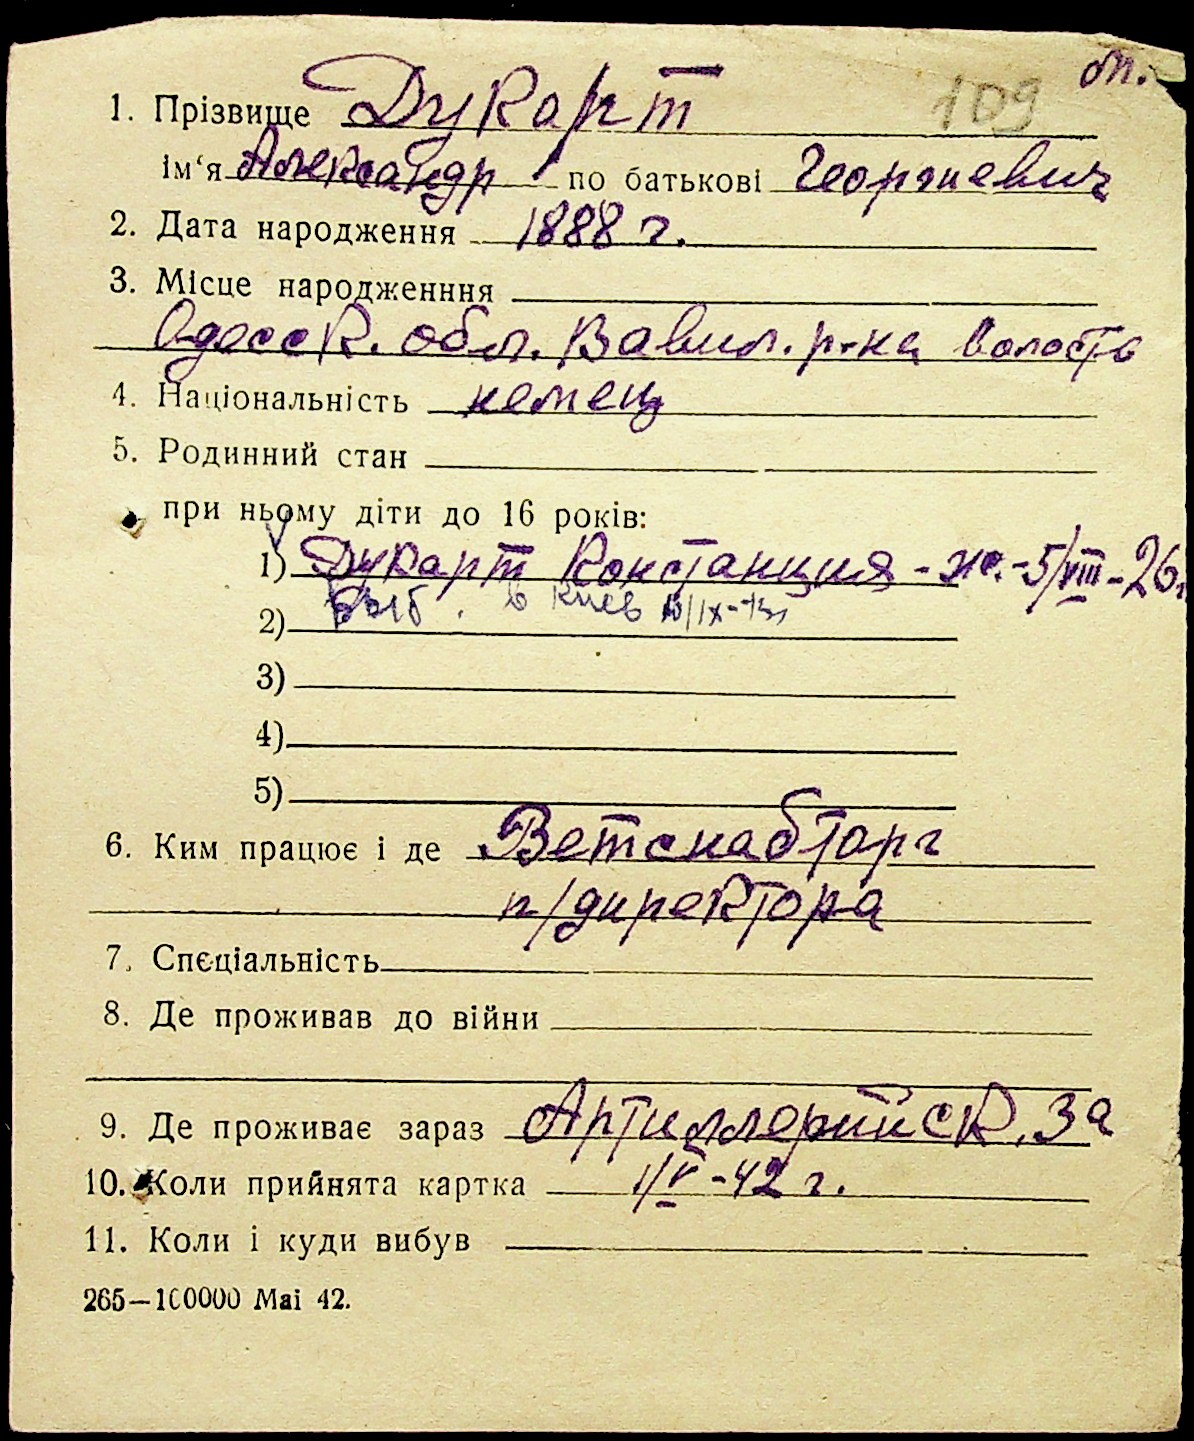 оп.
109
1. Прізвище Дукарт
ім‘я Александр по батькові Георгиевич
2. Дата народження 1888 г.
3. Місце народженння
Одесск. обл. Вавил. р-на волость
4. Національність немец
5. Родинний стан
при ньому діти до 16 років:
1) Дукарт Констанция - ж. - 5/VIII - 26 г.
2) в Киев
3)
4)
5)
6. Ким працює і де Ветснабторг
п/директора
7. Спєціальність
8. Де проживав до війни
9. Де проживає зараз Артиллерийск. 3а
10. Коли прийнята картка 1/V - 42 г.
11. Коли і куди вибув
265—100000 Маі 42.